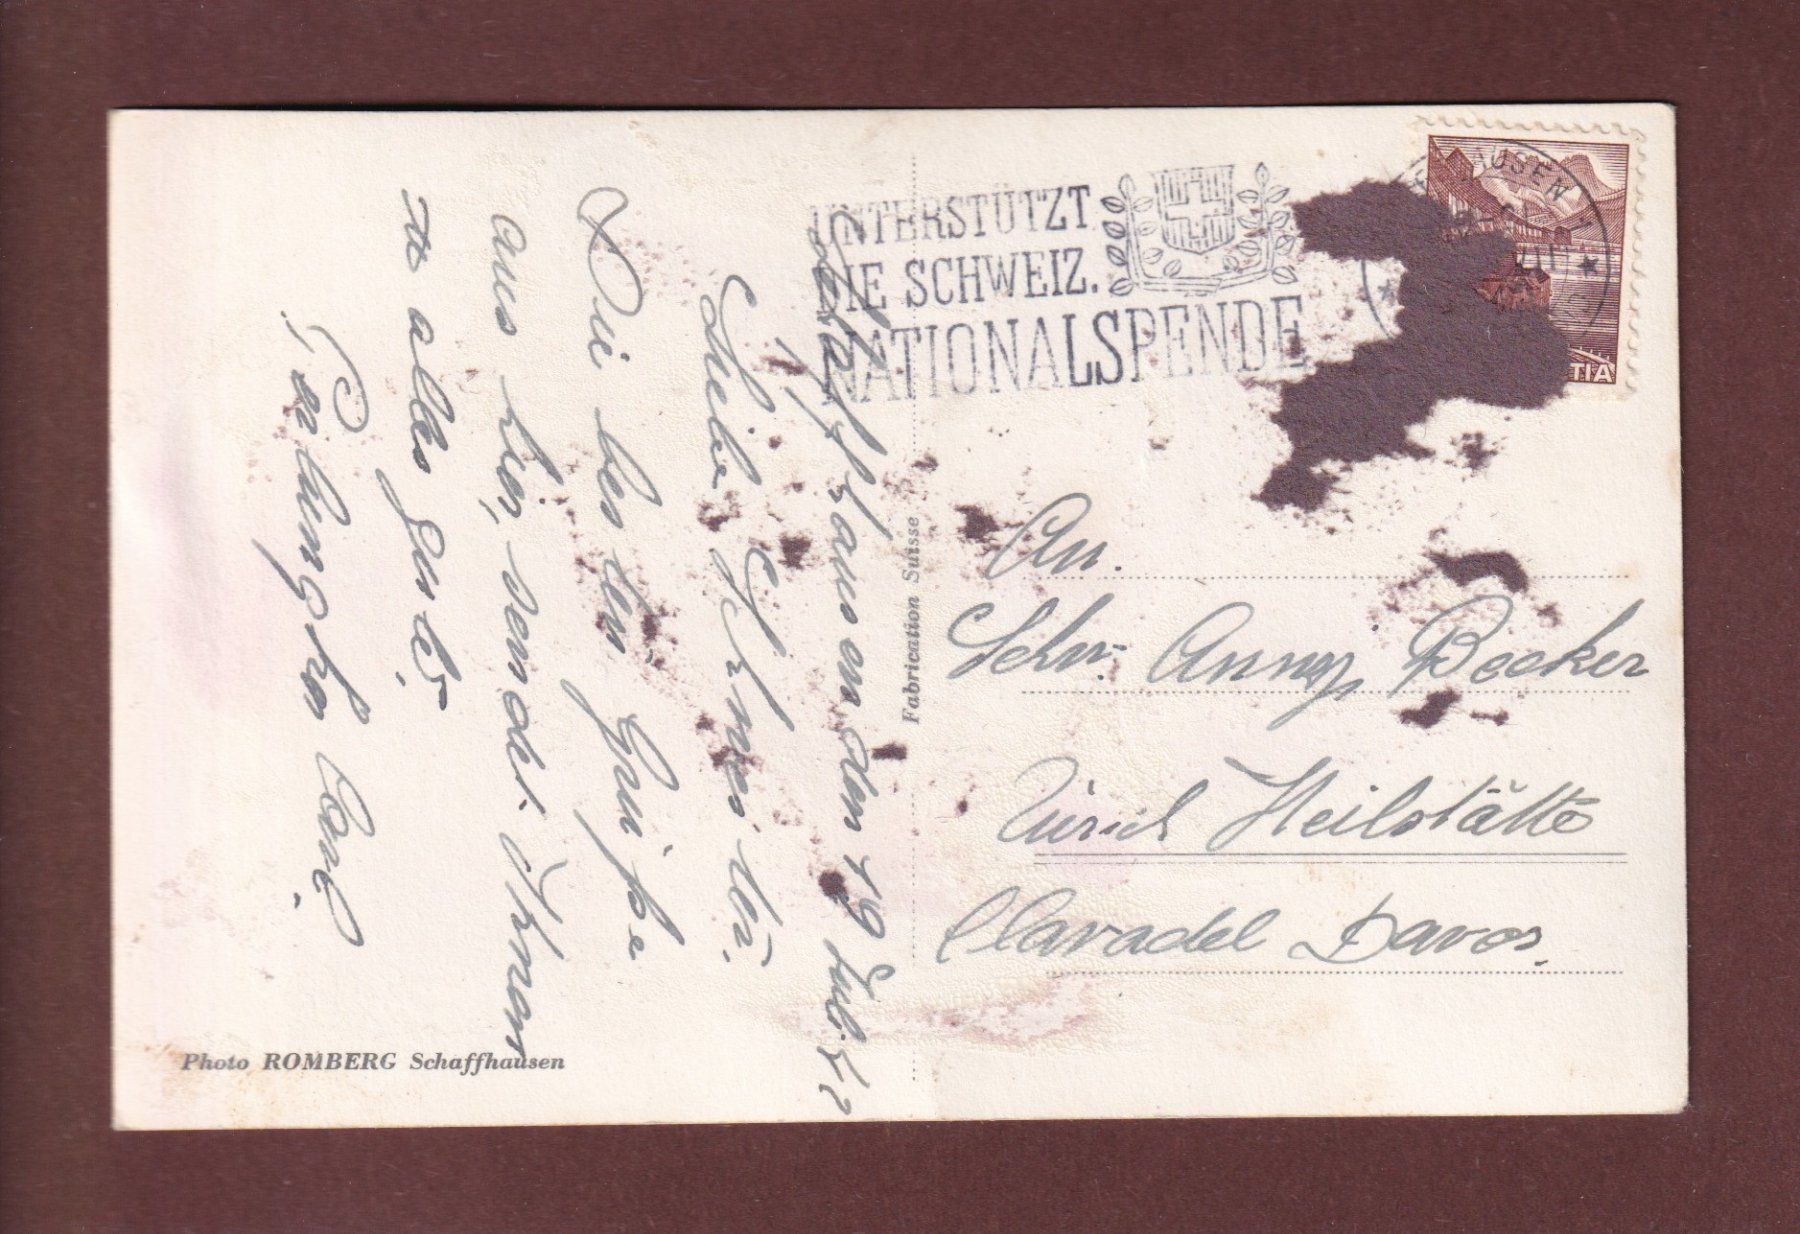 UNTERSTÜTZT
DIE SCHWEIZ.
NATIONALSPENDE
HAUSEN
TIA
Schaffhausen den 19 Juli 52
Liebe Schwester
Die besten Grüsse
aus hier, sendet Ihnen
alles Gute
Carl
Fabrication Suisse
An.
Schw. Anny Becker
Zürich Heilstätte
Clavadel Davos.
Photo ROMBERG Schaffhausen